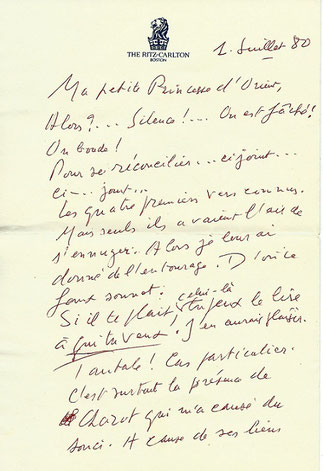 THE RITZ-CARLTON
BOSTON
1. Juillet 80
Ma petite Princesse d'Orient,
Alors?.... Silence!.... On est fâché!
On boude!
Pour se réconcilier.... ci joint....
ci-... joint...
Les quatre premiers vers connus.
Mais seuls ils avaient l'air de
s'ennuyer. Alors je leur ai
donné de l'entourage. D'où ce
faux sonnet.
Si il te plait, celui-là tu peux le lire
à qui tu veux! J'en aurais plaisir.
Tantale! Cas particulier.
C'est surtout la présence de
Charot qui m'a causé du
souci. A cause de ses liens